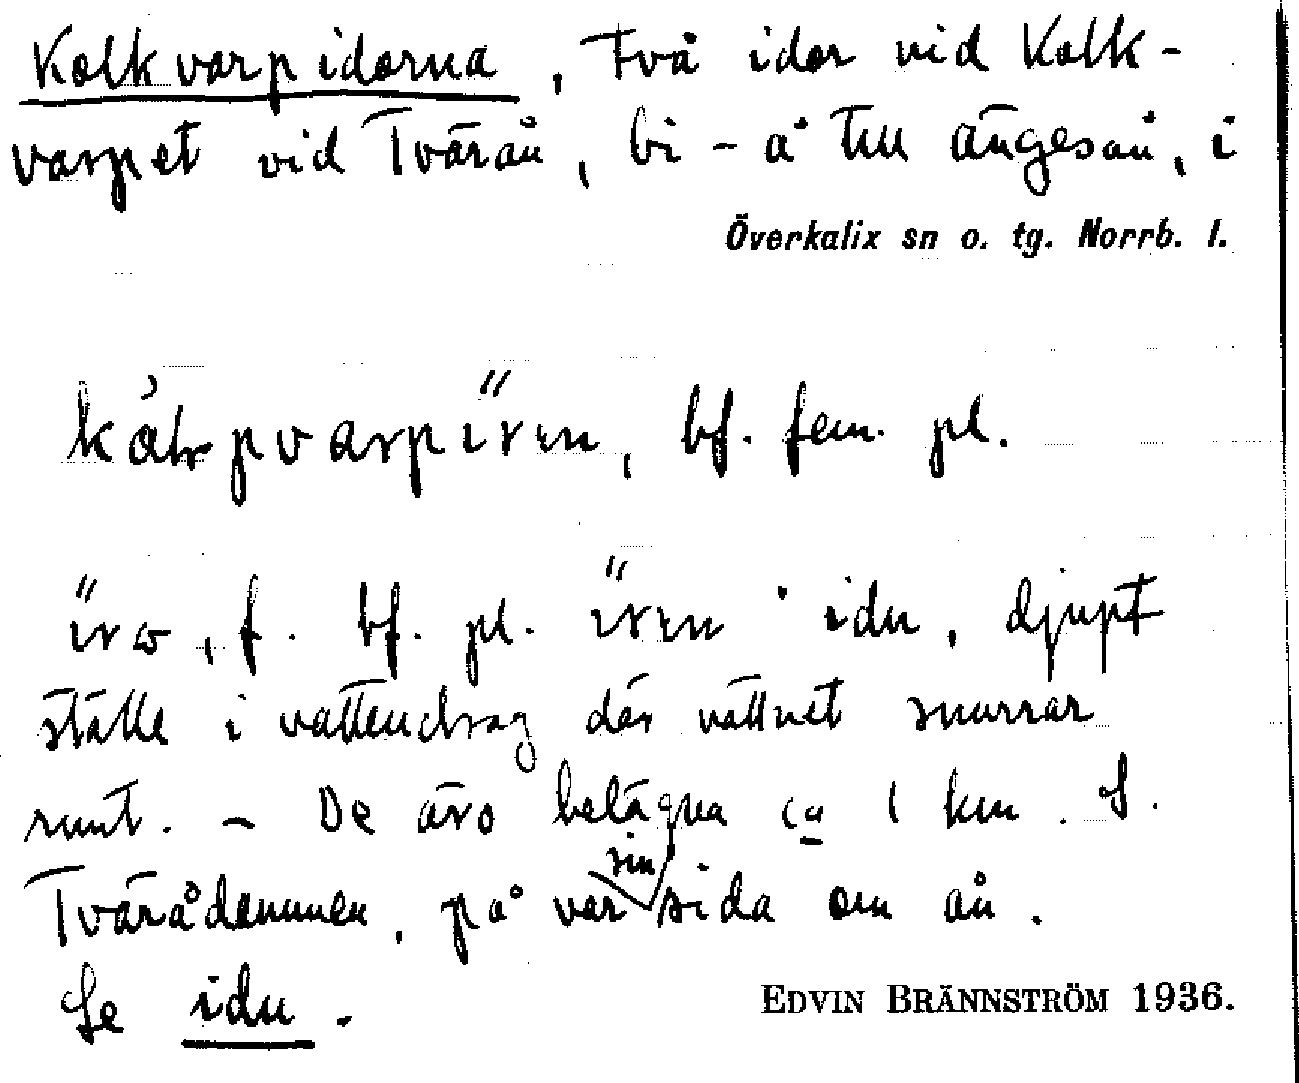 Kolkvarpidorna, Två idor vid Kolk-
varpet vid Tvärån, bi-å till Ängesån, i
Överkalix sn o. tg. Norrb. l.
bf. fem. pl.
f. bf. pl. ' idu, djupt
ställe i vattendrag där vattnet snurrar
runt. - De äro belägna ca 1 km. S.
Tvärådammen, på var sin sida om ån.
Se idu.
EDVIN BRÄNNSTRÖM 1936.